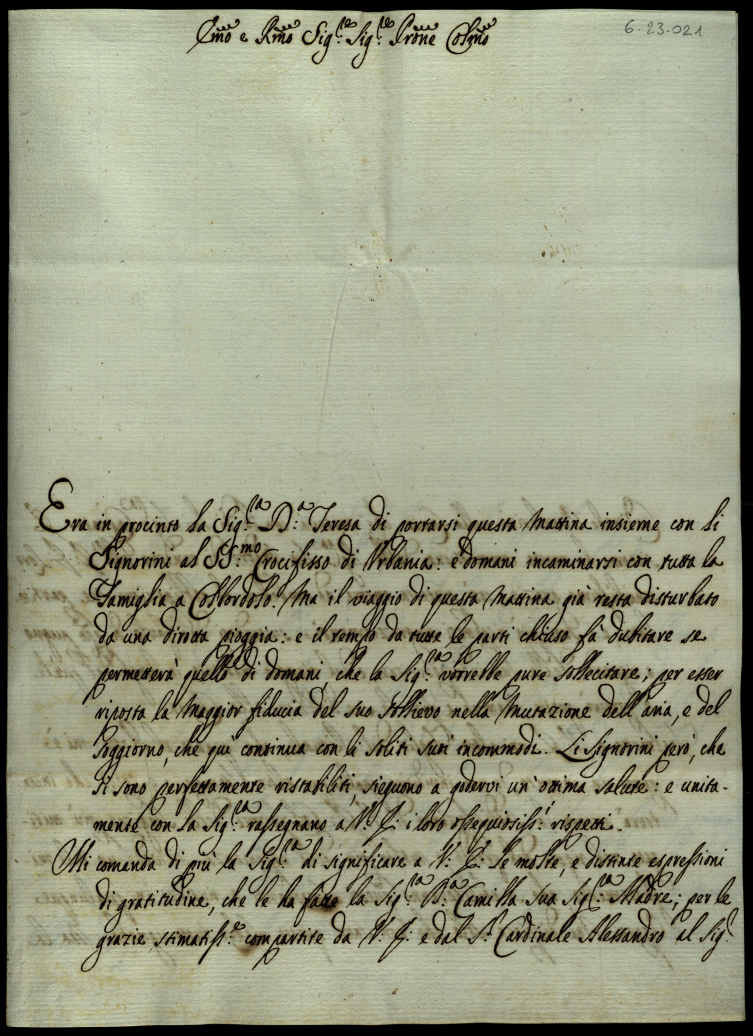 6-23-021
Emo e Rmo Sig.re Sig.re Prone Colmo
Era in procinto la Sig.ra D.a Teresa di portarsi questa mattina insieme con li
Signorini al SS.mo Crocifisso di Urbania: e domani incaminarsi con tutta la
Famiglia a Colbordolo. Ma il viaggio di questa mattina già resta disturbato
da una dirotta pioggia: e il tempo da tutte le parti chiuso fà dubitare se
permetterà quello di domani, che la Sig.ra vorrebbe pure sollecitare; per esser
riposta la maggior fiducia del suo sollievo nella mutazione dell'aria, e del
soggiorno, che quì continua con li soliti suoi incommodi. Li Signorini però, che
si sono perfettamente ristabiliti, sieguono a godervi un'ottima salute: e unita-
mente con la Sig.ra rassegnano a V. E. i loro ossequiosiss.i rispetti.
Mi comanda di più la Sig.ra di significare a V. E. le molte, e distinte espressioni
di gratitudine, che le ha fatte la Sig.ra D.a Camilla sua Sig.ra Madre; per le
grazie stimatiss.e compartite da V. E. e dal S.r Cardinale Alessandro al Sig.r